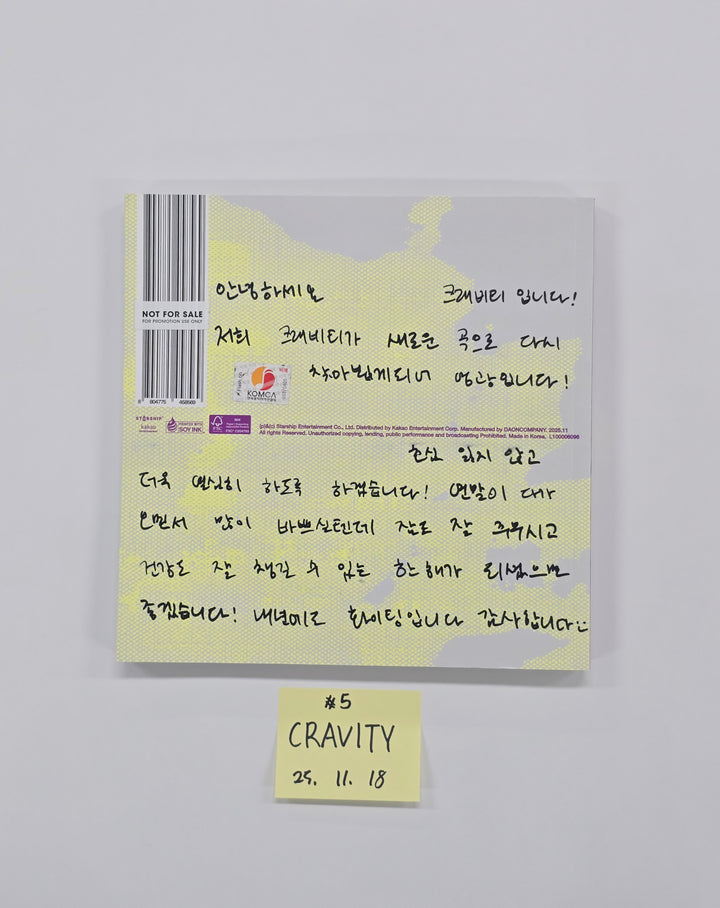 안녕하세요 크래비티 입니다!
NOT FOR SALE
FOR PROMOTION USE ONLY
저희 크래비티가 새로운 곡으로 다시
찾아뵙게되어 영광입니다!
KOMCA
8 804775 458569
STARSHIP
kakao
PRINTED WITH SOY INK
FSC
MIX
(p)&(c) Starship Entertainment Co., Ltd. Distributed by Kakao Entertainment Corp. Manufactured by DAONCOMPANY. 2025.11
All rights Reserved. Unauthorized copying, lending, public performance and broadcasting Prohibited. Made in Korea. L100006096
초심 잃지 않고
더욱 열심히 하도록 하겠습니다! 연말이 다가
오면서 많이 바쁘실텐데 잠도 잘 주무시고
건강도 잘 챙길 수 있는 한해가 되셨으면
좋겠습니다! 내년에도 화이팅입니다 감사합니다
#5
CRAVITY
25. 11. 18